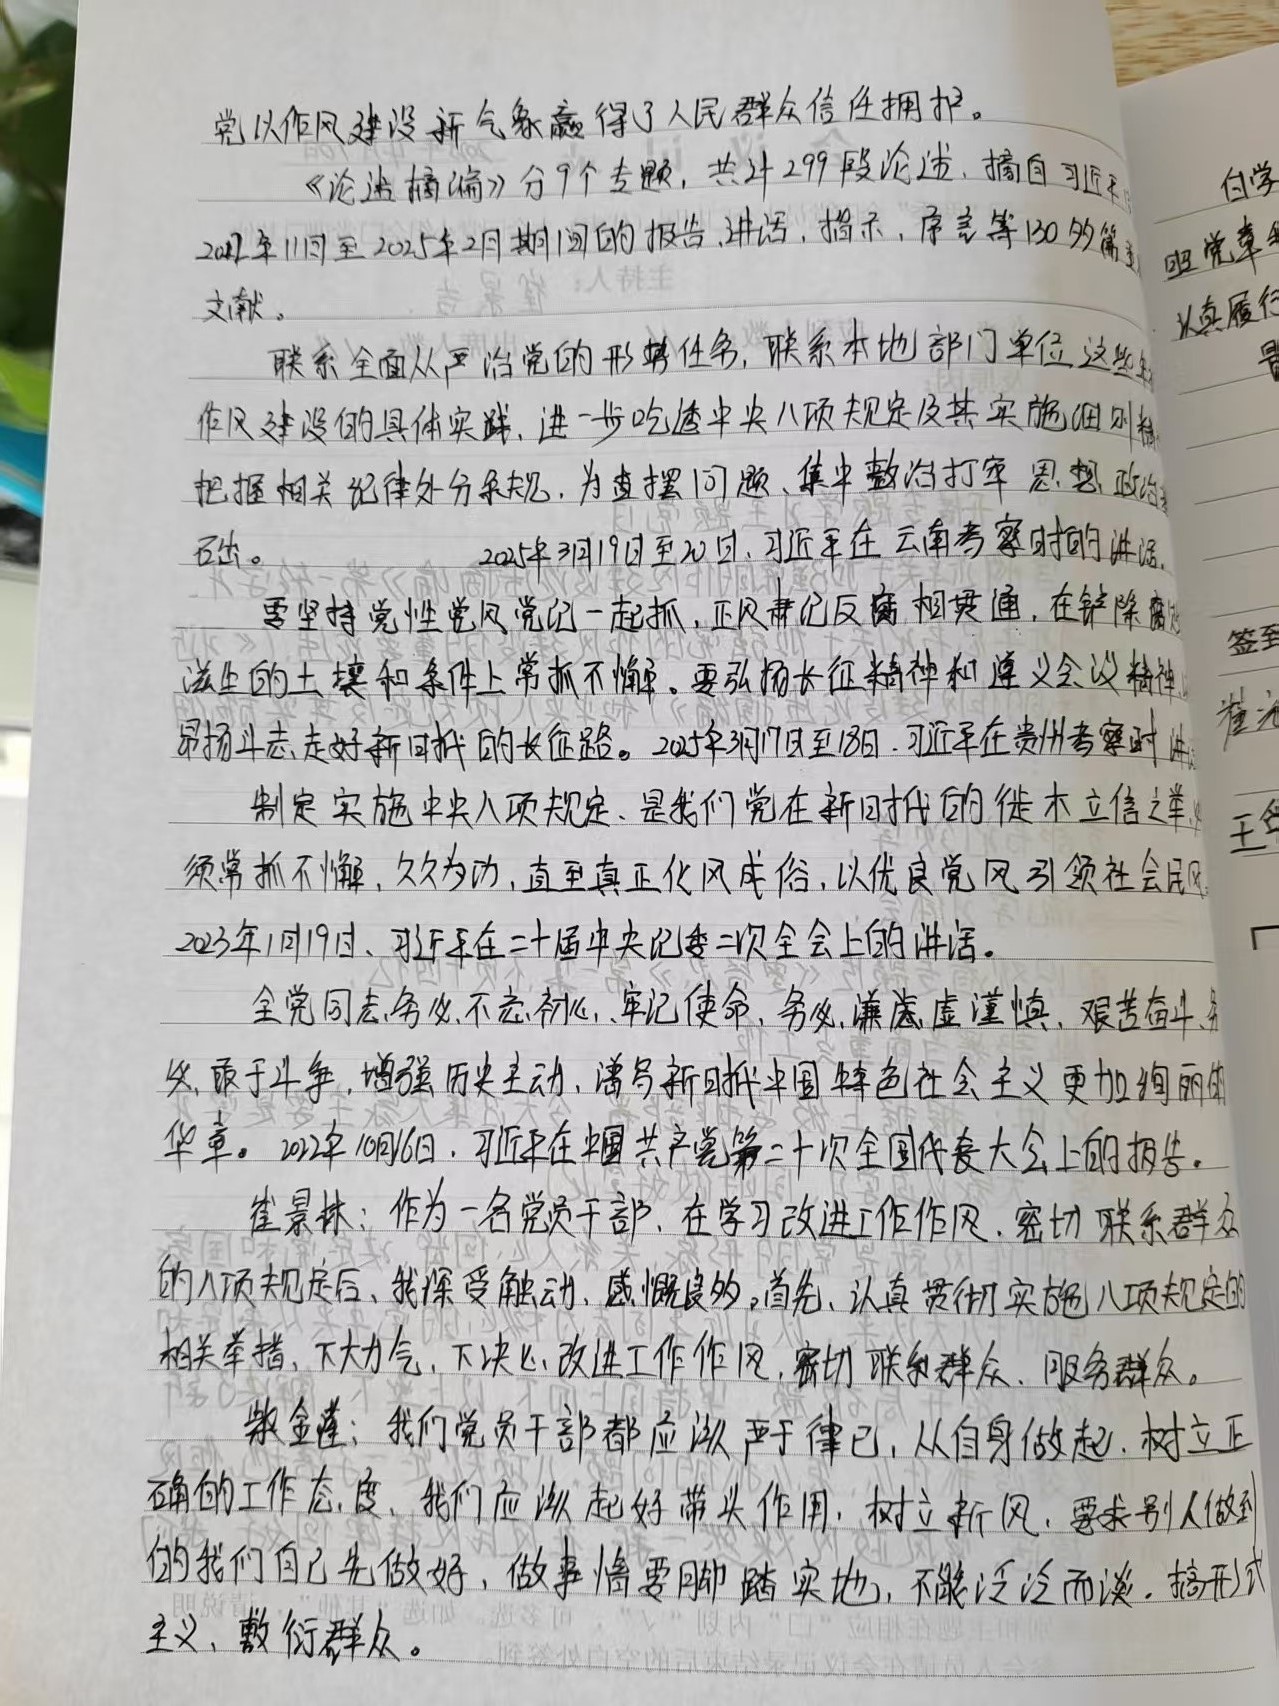 党以作风建设新气象赢得了人民群众信任拥护。
《论述摘编》分9个专题，共计299段论述，摘自习近平
2012年11月至2025年2月期间的报告、讲话、指示、序言等130多篇
文献。
联系全面从严治党的形势任务，联系本地部门单位这些年
作风建设的具体实践，进一步吃透中央八项规定及其实施细则精
把握相关纪律处分条规，为查摆问题、集中整治打牢思想政治
石出。 2025年3月19日至20日，习近平在云南考察时的讲话。
要坚持党性党风党纪一起抓，正风肃纪反腐相贯通，在铲除腐
滋生的土壤和条件上常抓不懈。要弘扬长征精神和遵义会议精神，
昂扬斗志、走好新时代的长征路。2025年3月17日至18日，习近平在贵州考察时讲
制定实施中央八项规定、是我们党在新时代的徙木立信之举，
须常抓不懈，久久为功，直至真正化风成俗，以优良党风引领社会民风
2023年1月19日、习近平在二十届中央纪委二次全会上的讲话。
全党同志务必不忘初心、牢记使命，务必谦虚谨慎、艰苦奋斗，务
必敢于斗争，增强历史主动，谱写新时代中国特色社会主义更加绚丽的
华章。2022年10月16日，习近平在中国共产党第二十次全国代表大会上的报告。
崔景林：作为一名党员干部，在学习改进工作作风，密切联系群众
的八项规定后、我深受触动、感慨良多。首先、认真贯彻实施八项规定的
相关举措，下大力气，下决心改进工作作风，密切联系群众、服务群众。
金莲：我们党员干部都应该严于律己，从自身做起，树立正
确的工作态度，我们应该起好带头作用，树立新风，要求别人做到
的我们自己先做好，做事情要脚踏实地，不能泛泛而谈，搞形式
主义，敷衍群众。
自学
党章
认真履行
签到
崔
王